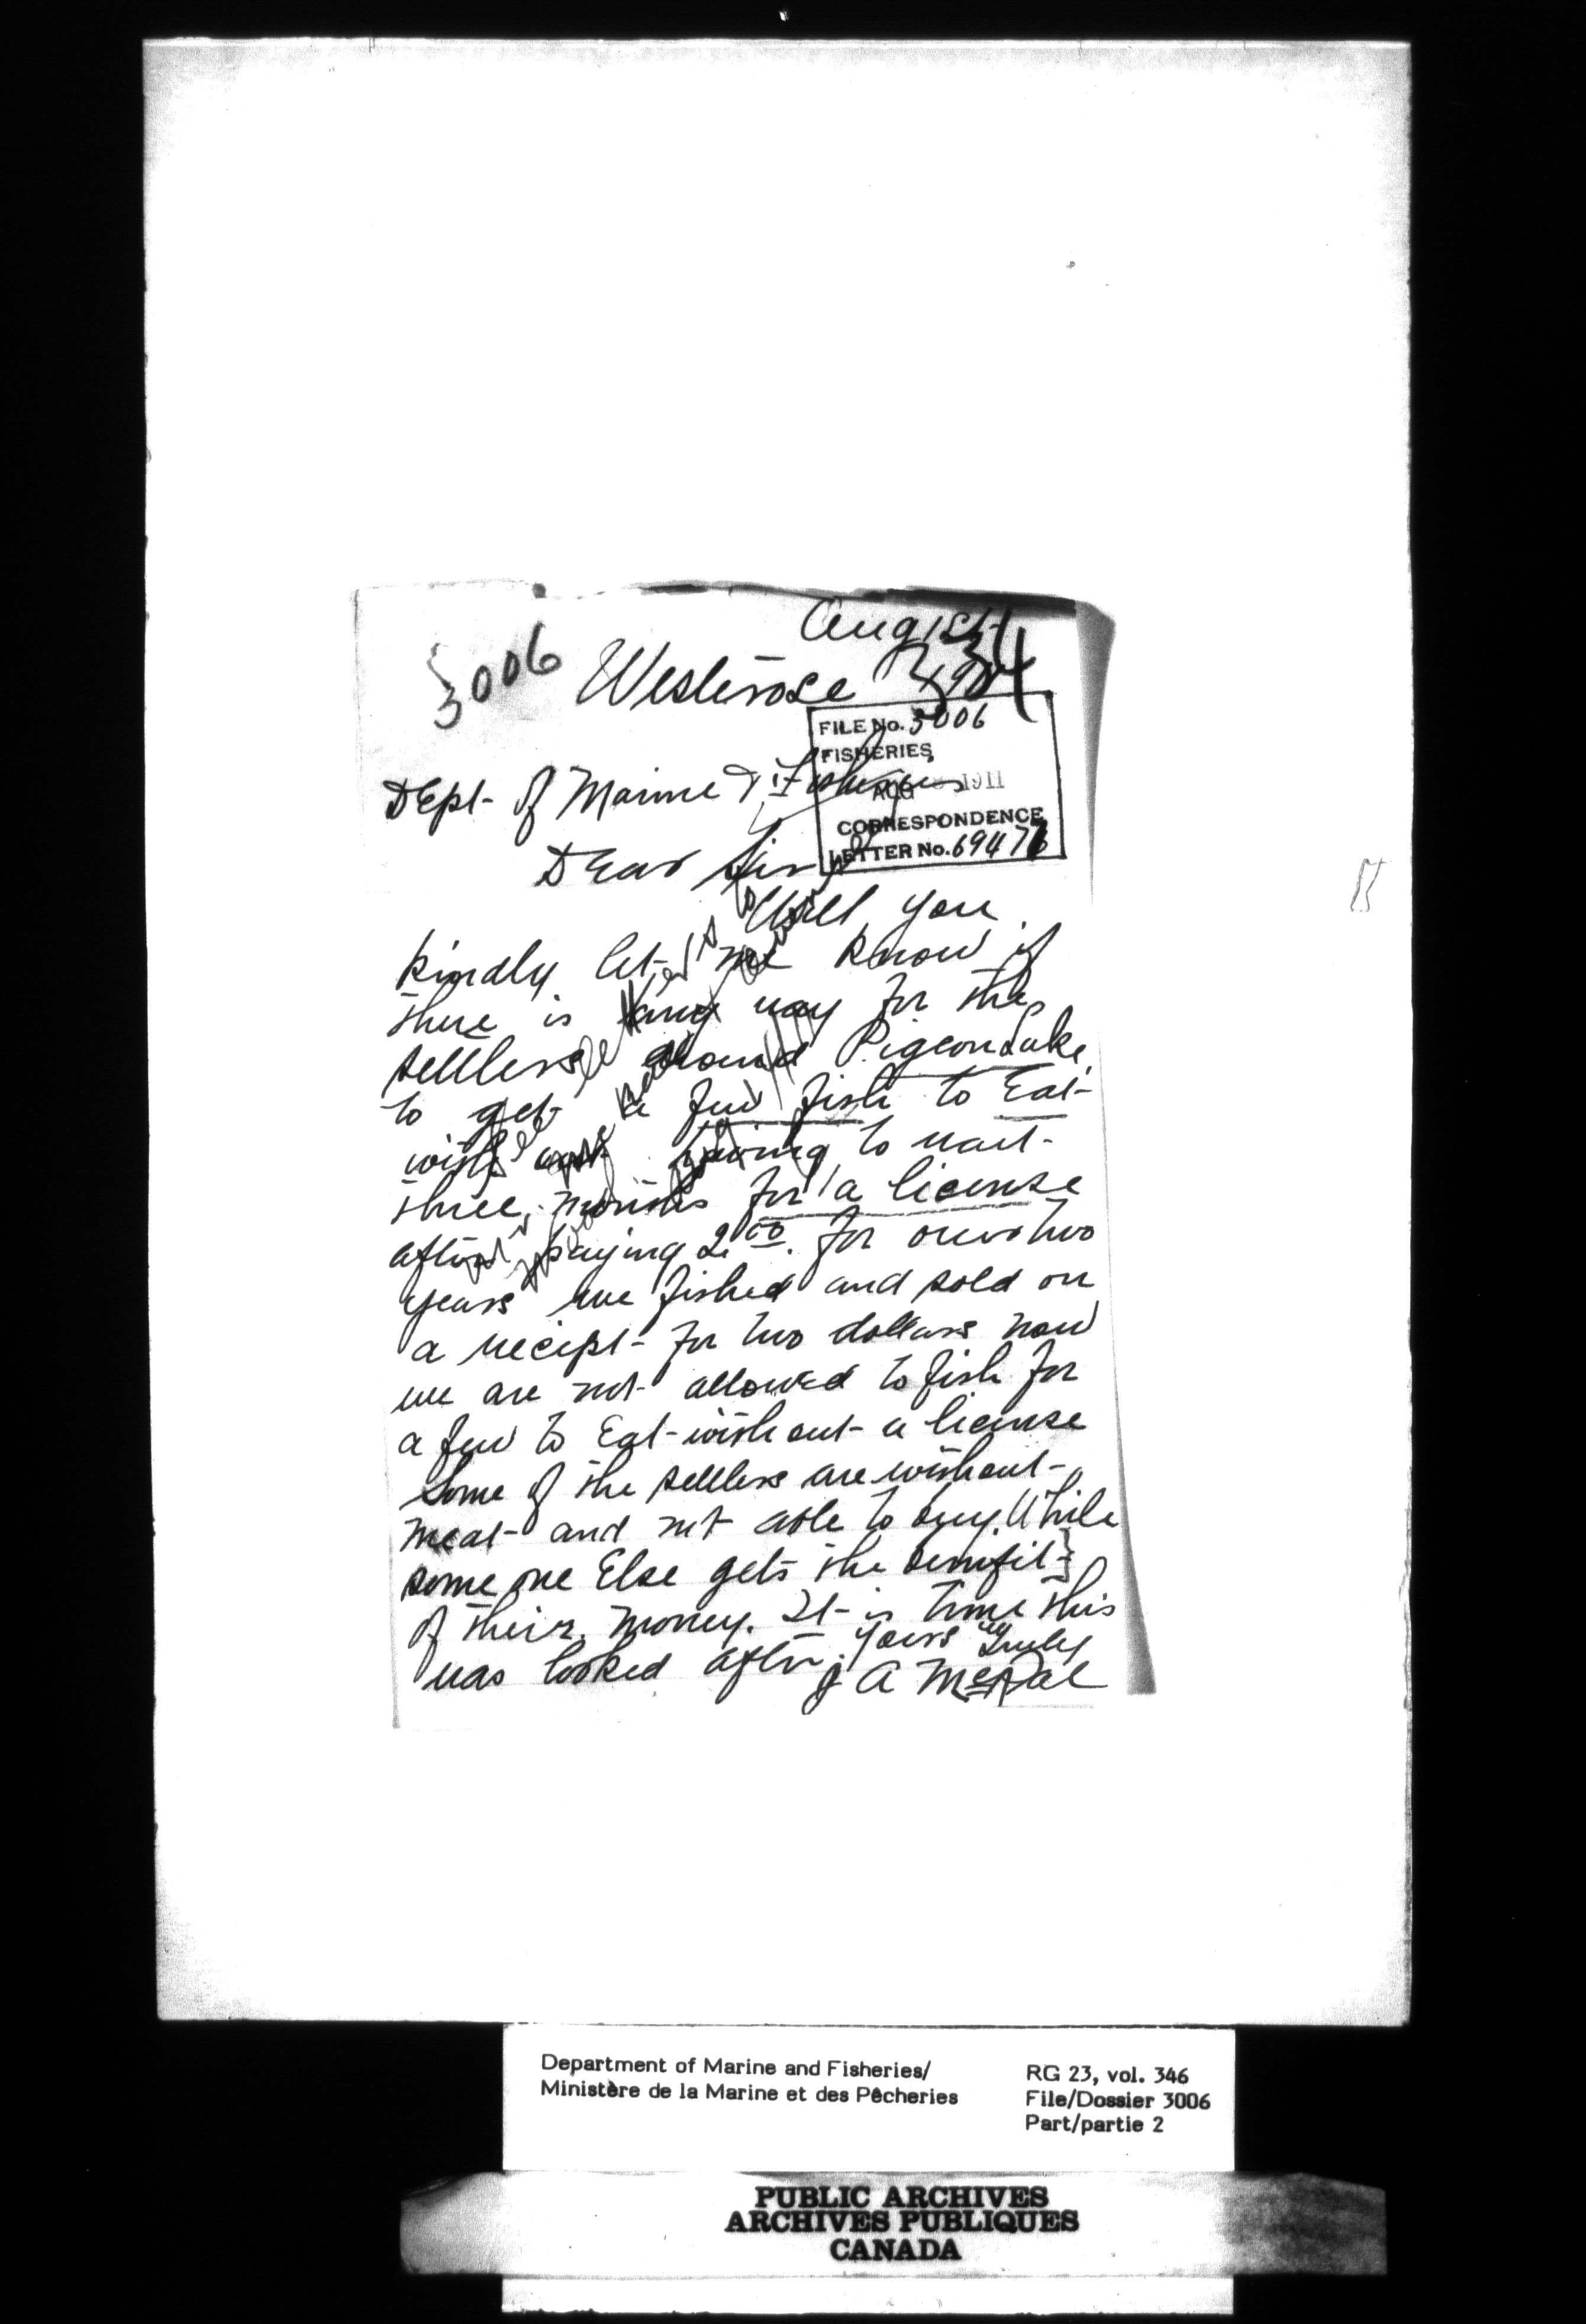 Aug 1st
3006 Westerose
FILE No. 3006
FISHERIES,
AUG 1911
CORRESPONDENCE
LETTER No. 69476
Dept of Marine & Fisheries
Dear Sir
Will you
kindly let me know if
there is any way for the
settlers around Pigeon Lake
to get a few fish to Eat
with out having to wait
three months for a license
after paying 2.00. for over two
years we fished and sold on
a reciept for two dollars now
we are not allowed to fish for
a few to Eat without a license
Some of the settlers are without
meat and not able to buy. While
some one Else gets the benifit
of their money. It is time this
was looked after. Yours Truly
J A
Department of Marine and Fisheries/
Ministère de la Marine et des Pêcheries
RG 23, vol. 346
File/Dossier 3006
Part/partie 2
PUBLIC ARCHIVES
ARCHIVES PUBLIQUES
CANADA